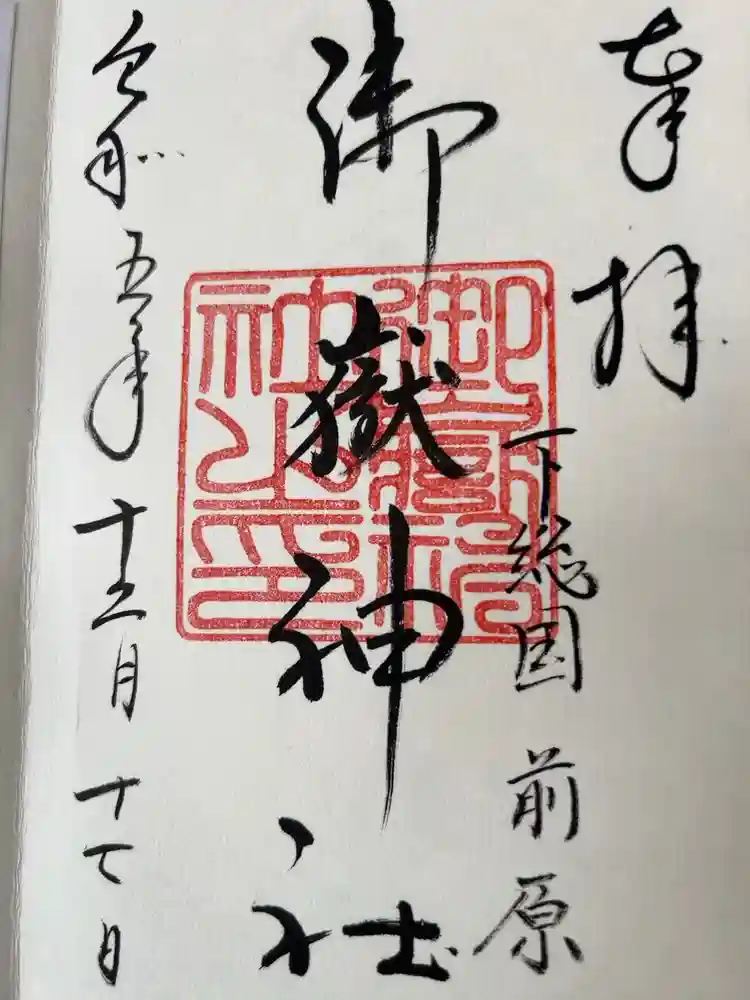 奉拝
下総国 前原
御嶽神社
御嶽神社之印
令和五年十二月十七日